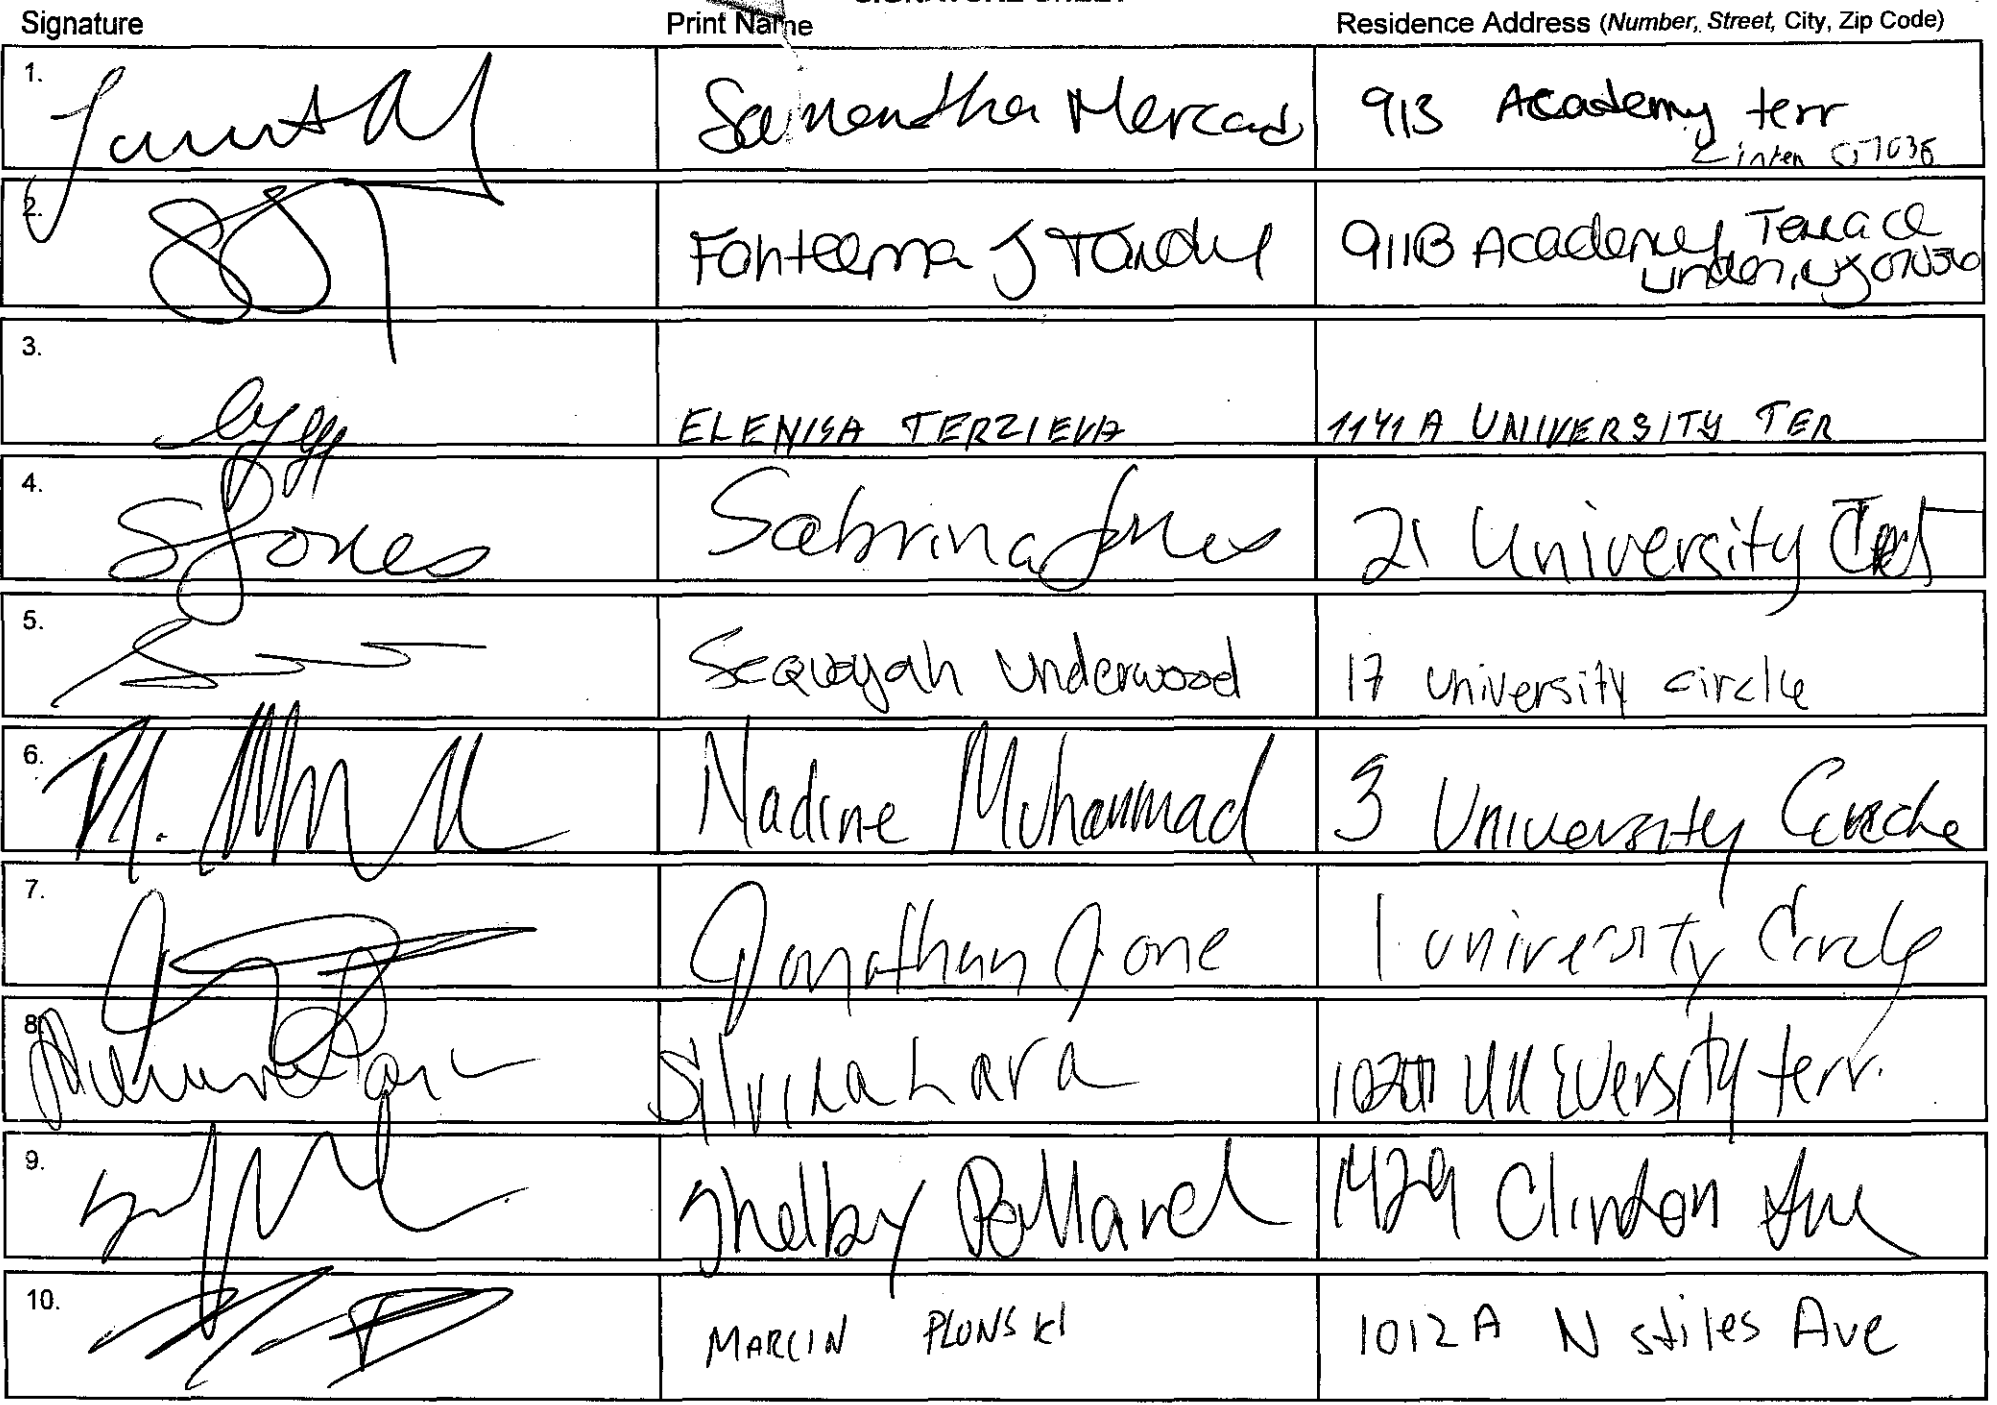 Signature Print Name Residence Address (Number, Street, City, Zip Code)
1. Samantha Mercado 913 Academy terr
Linden 07036
2. J Tandy 911B Academy Terrace
Linden, NJ 07036
3. ELENISA TERZIEVA 1141 A UNIVERSITY TER
4. SJones Sabrina Jones 21 University
5. Sequoyah Underwood 17 University circle
6. Nadine Muhammad 3 University Circle
7. Jonathan Jone 1 University Circle
8. Silvina Lara University terr.
9. Shelby Pollard 1429 Clinton Ave
10. MARCIN PLONSKI 1012 A N stiles Ave